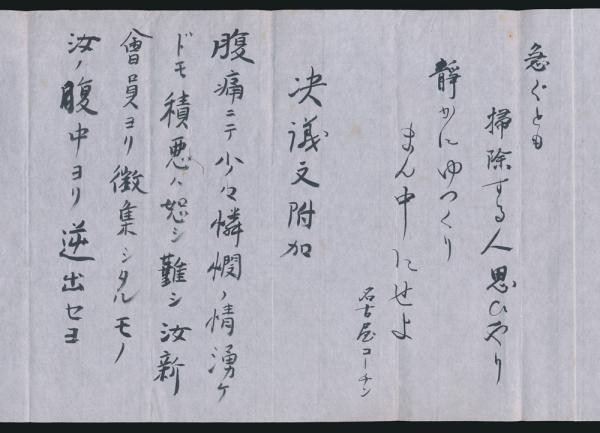 急ぐとも
掃除する人思ひやり
静かにゆつくり
まん中にせよ
名古屋コーチン
決議文附加
腹痛ニテ少々憐憫ノ情湧ケ
ドモ積悪ハ恕シ難シ汝新
會員ヨリ徴集シタルモノ
汝ノ腹中ヨリ逆出セヨ